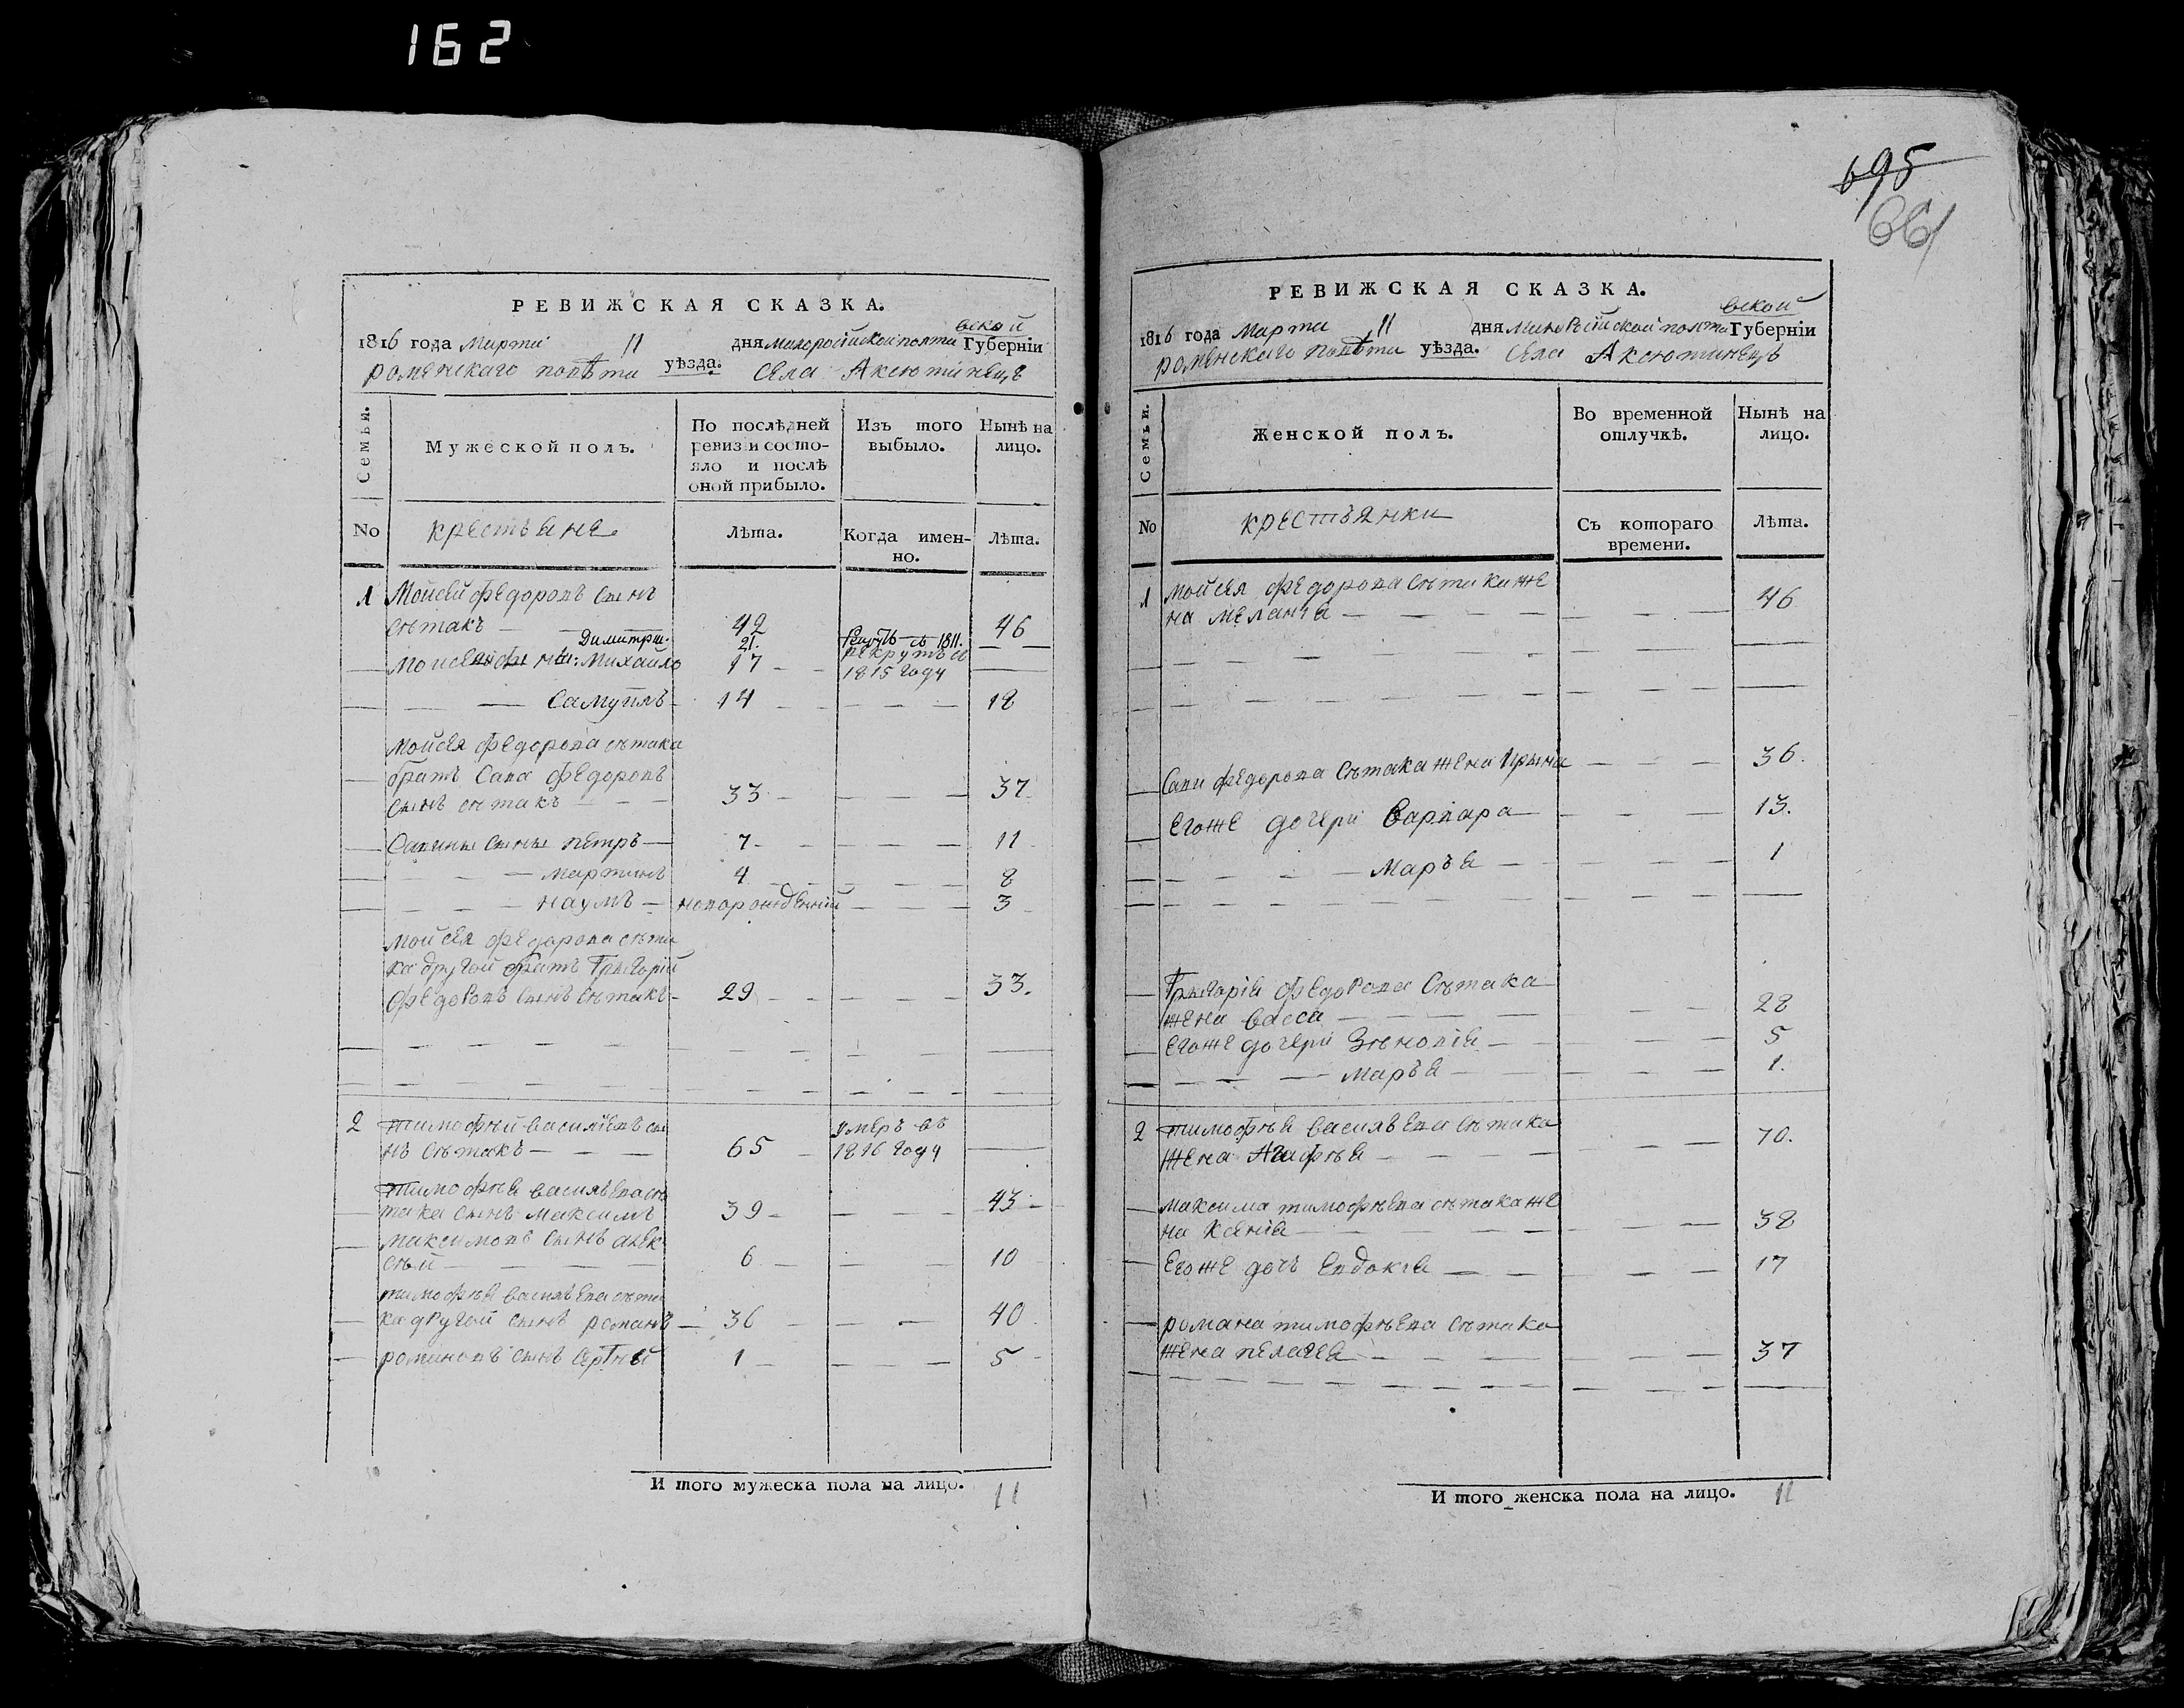 162
695
661
РЕВИЖСКАЯ СКАЗКА.
вской
1816 года Марта 11 дня малоросійской полта Губерніи
роменскаго повѣта уѣзда. Села Аксютинецъ
Семьи.
Мужеской полъ.
По послѣдней
ревизіи состо-
яло и послѣ
оной прибыло.
Изъ того
выбыло.
Нынѣ на
лицо.
No
крестьяне
Лѣта.
Когда имен-
но.
Лѣта.
1 Мойсей федоровъ сынъ
сѣтакъ 42 46
Димитрій. 21. рекрутъ въ 1811.
Мойсея сыны: Михайло 17 рекрутъ въ
1815 году
Самуилъ 14 18
Мойсея федорова сѣтака
братъ Сава федоровъ
сынъ сѣтакъ 33 37
Савины сыны петръ 7 11
мартинъ 4 8
наумъ новорожденній 3
Мойсея федорова сѣта
ка другой братъ Григорій
федоровъ сынъ сѣтакъ 29 33.
2 тимофѣй василіевъ сы умеръ въ
нъ сѣтакъ 65 1816 году
тимофѣя василъева сѣ
така сынъ максимъ 39 43
максимовъ сынъ алек
сѣй 6 10
тимофѣя василъева сѣта
ка другой сынъ романъ 36 40
романовъ сынъ сергѣй 1 5
И того мужеска пола на лицо. 11
РЕВИЖСКАЯ СКАЗКА.
вской
1816 года Марта 11 дня малоросійской полта Губерніи
роменскаго повѣта уѣзда. Села Аксютинецъ
Семьи.
Женской полъ.
Во временной
отлучкѣ.
Нынѣ на
лицо.
No
крестьянки
Съ котораго
времени.
Лѣта.
1 мойсея федорова сѣтака же
на меланія 46
Сави федорова сѣтака жена Ирина 36.
егоже дочери варвара 13.
маръя 1
Григорія федорова Сѣтака
жена васса 28
егоже дочери Зѣновія 5
маръя 1.
2 тимофѣя василъева сѣтака
жена Агафѣя 70.
максима тимофѣева сѣтака же
на ксенія 38
егоже дочъ евдокія 17
романа тимофѣева сѣтака
жена пелагея 37
И того женска пола на лицо. 11